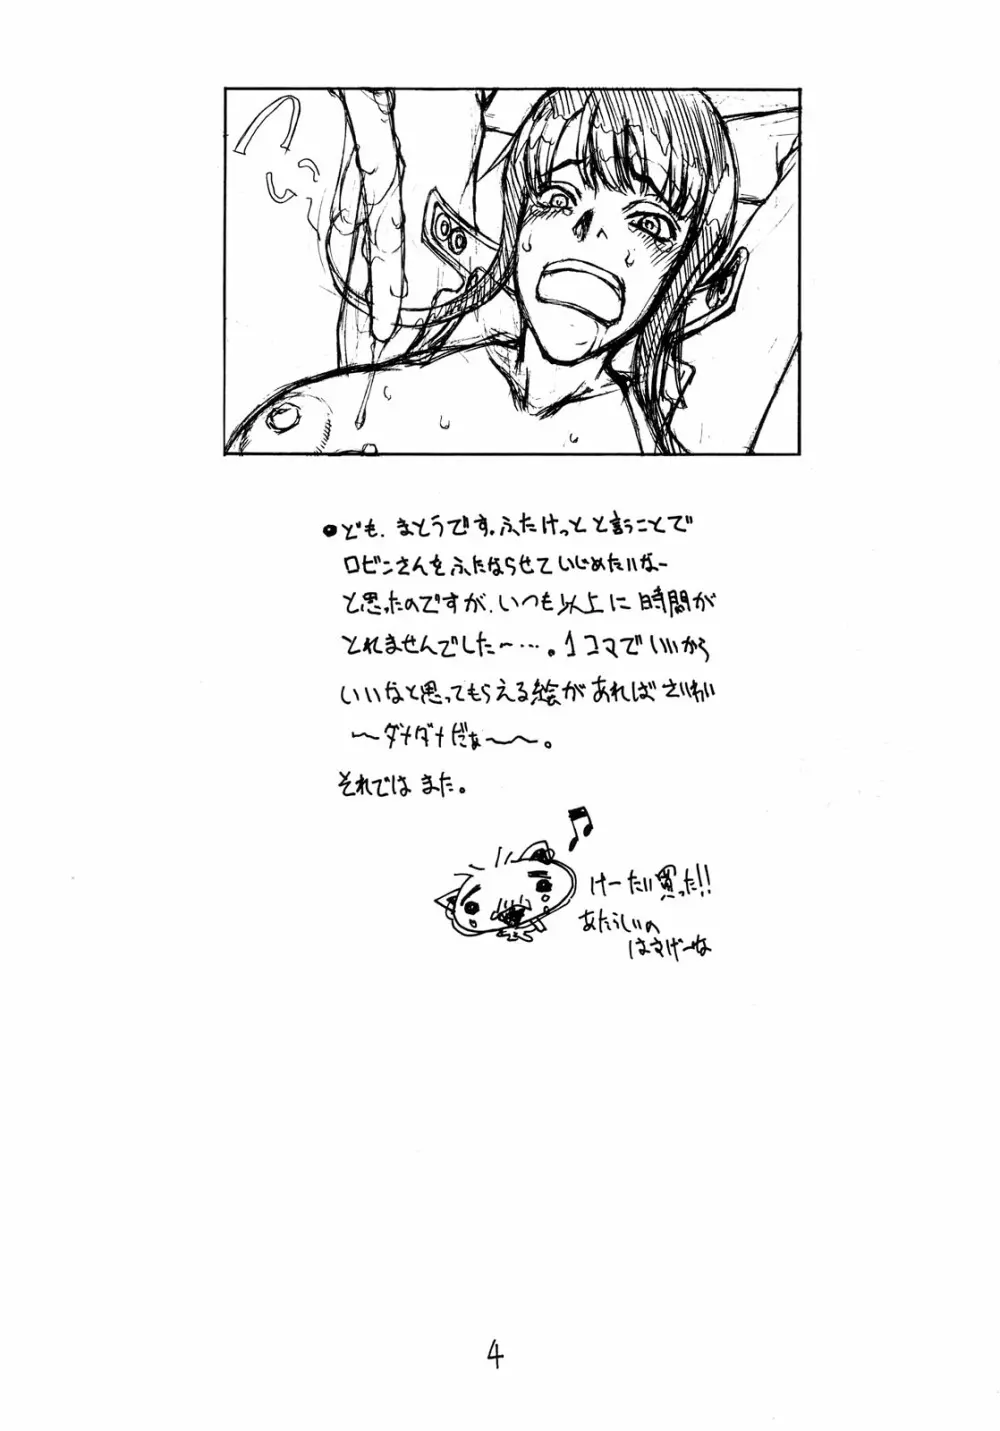 ●ども、まとうです。ふたけっとと言うことで
ロビンさんをふたならせていじめたいなー
と思ったのですが、いつも以上に時間が
とれませんでした〜…。1コマでいいから
いいなと思ってもらえる絵があればさいわい
〜ダメダメだぁ〜〜。
それではまた。
♪
けーたい買った!!
あたらしいの
はすげーな
4